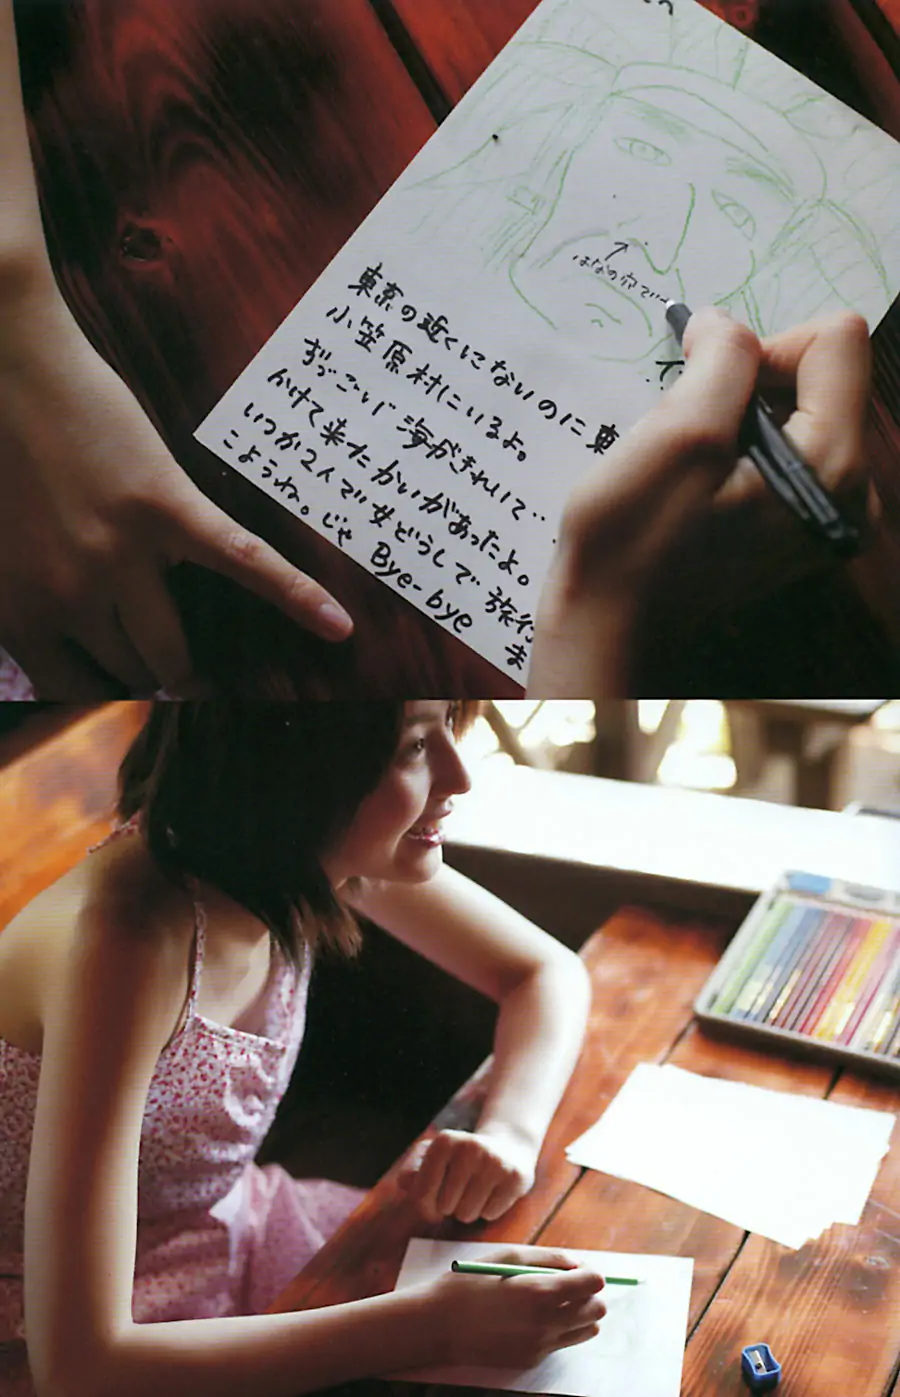 はなの穴で
東京の近くにないのに東
小笠原村にいるよ。
すっごいい海がきれいで‥
かけて来たかいがあったよ。
いつか2人で女どうしで旅行
ま
こようね。じゃ Bye-bye